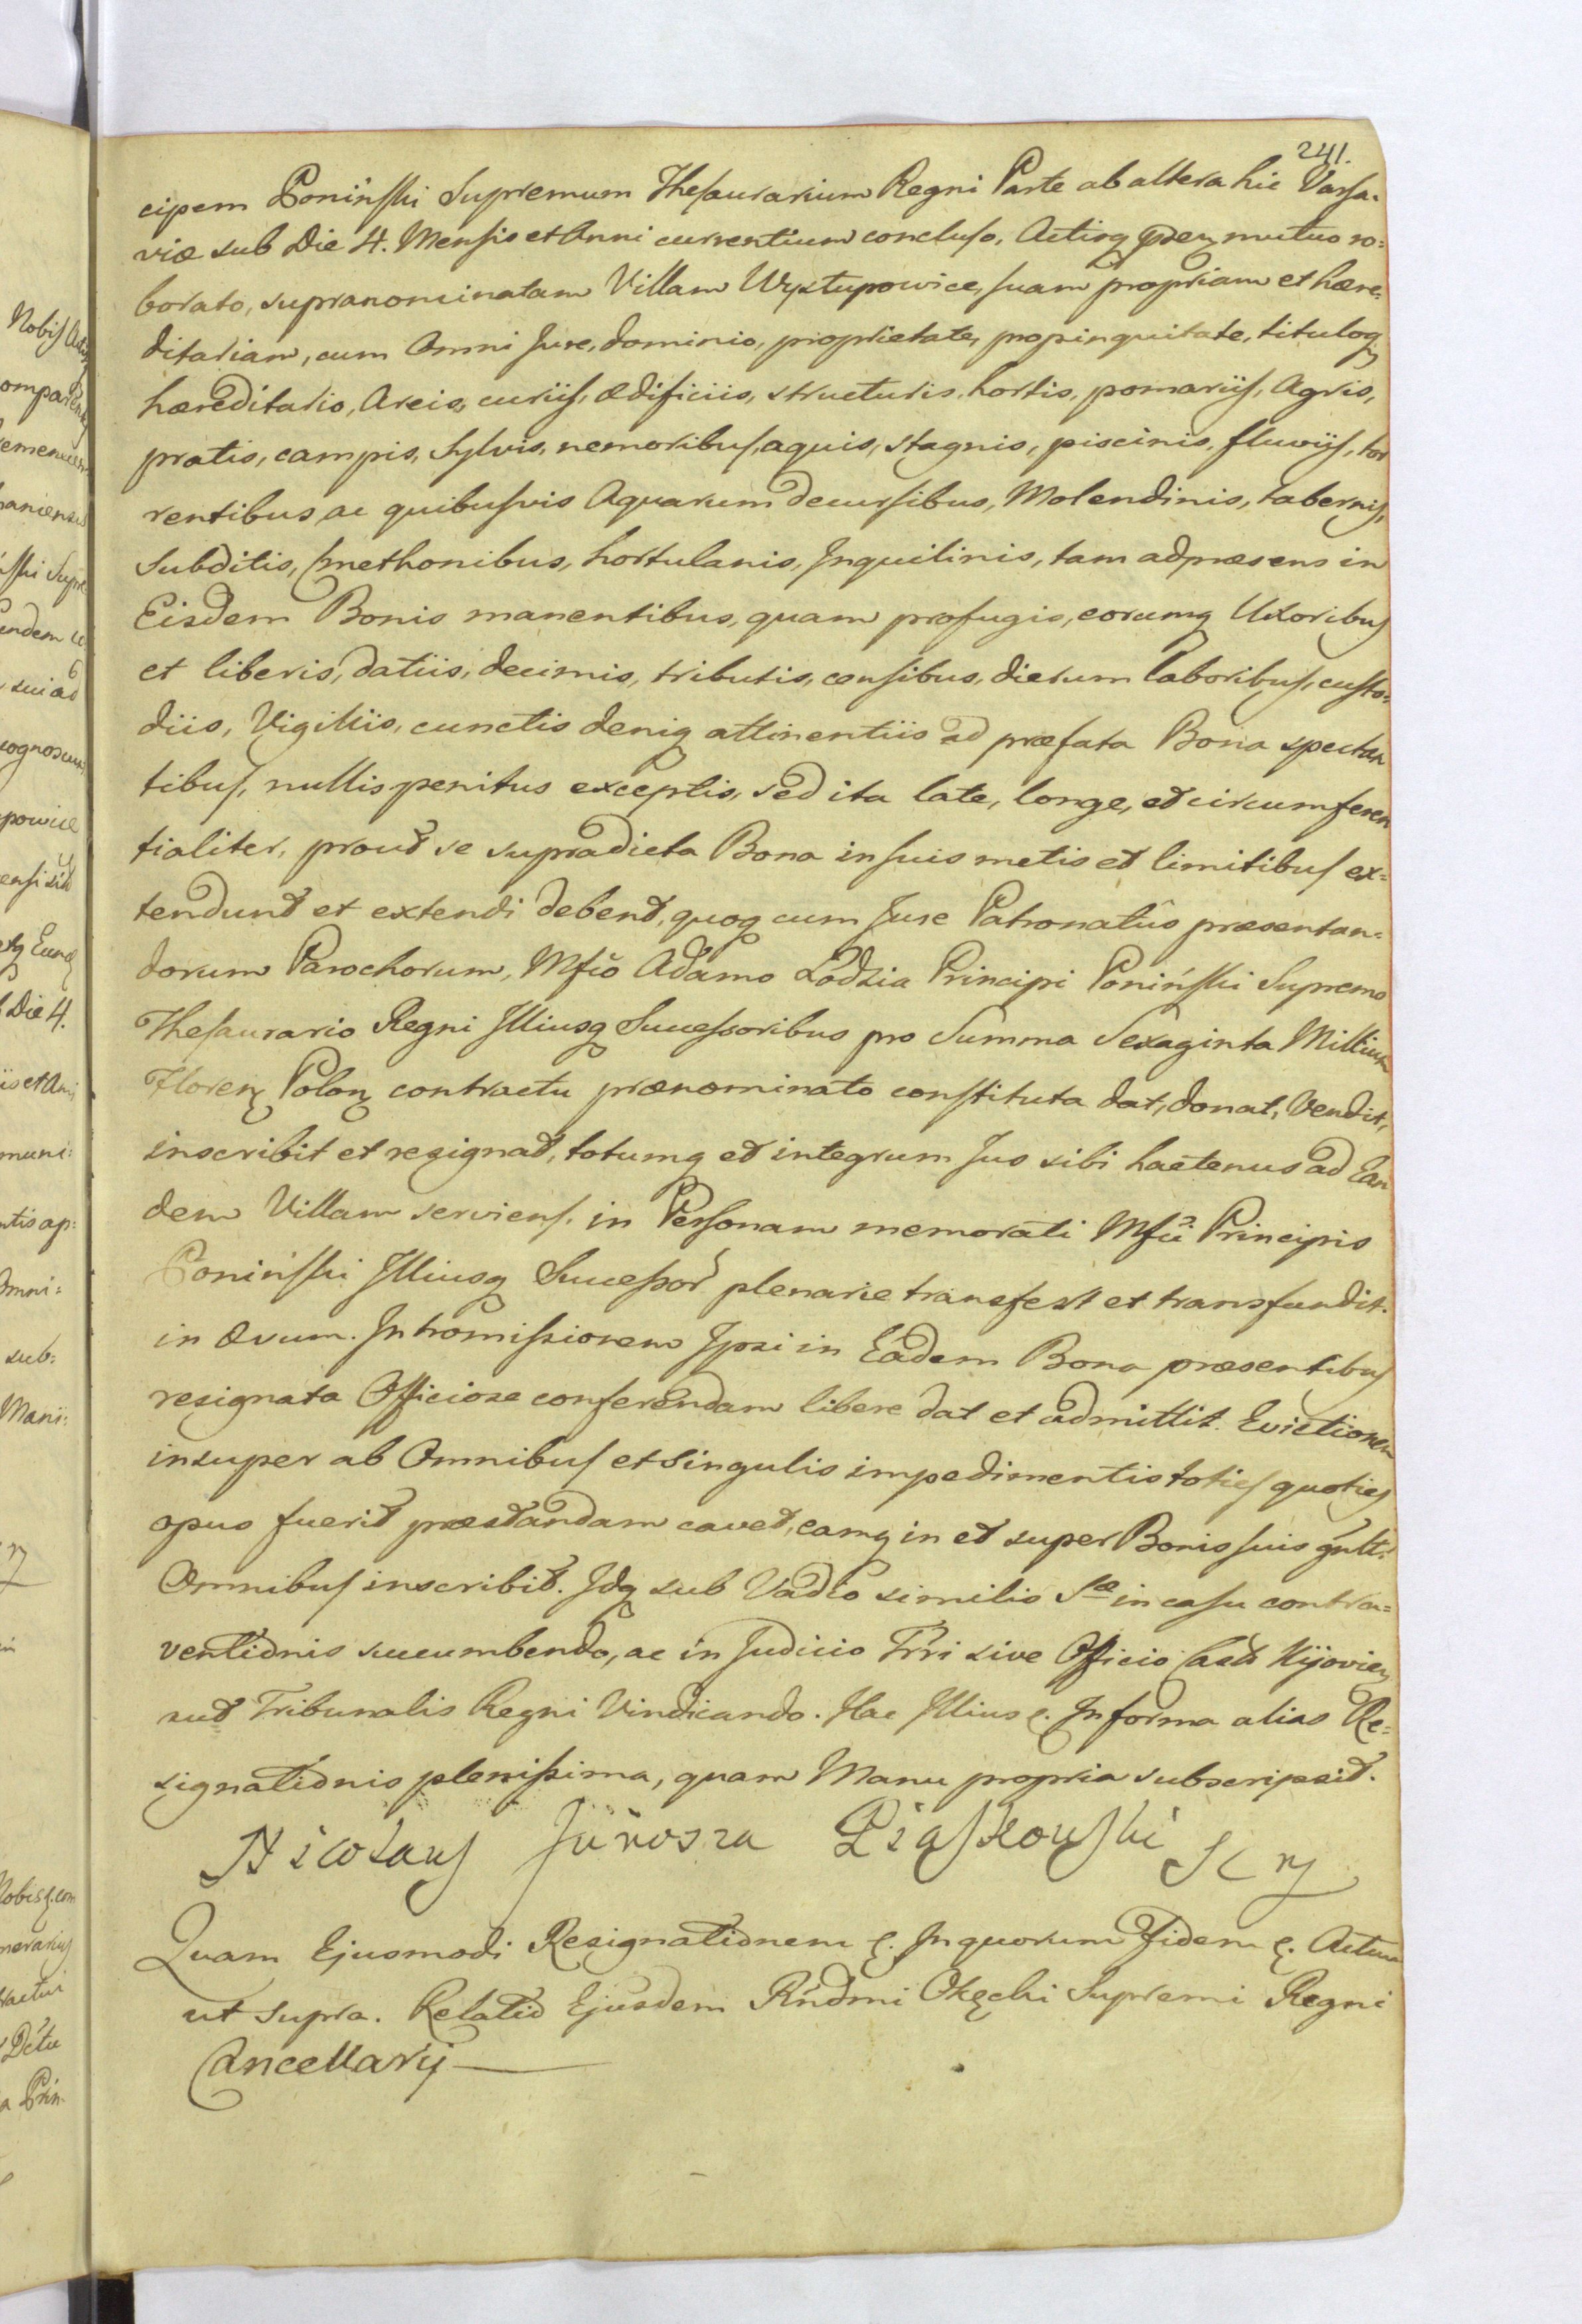 241.
cipem Poniński Supremum Thesaurarium Regni Parte ab altera hic Varsa-
viæ sub Die 4. Mensis et Anni currentium concluso, Actisq mutuo ro=
borato, supranominatam Villam Wystupowice, suam propriam et hære-
ditariam, cum Omni Jure, dominio, proprietate, propinquitate, tituloq
hæreditario, Areis, curiis, ædificiis, structuris, hortis, pomariis, Agris,
pratis, campis, Sylvis, nemoribus, aquis, stagnis, piscinis, fluviis, tor
rentibus, ac quibusvis Aquarum decursibus, Molendinis, tabernis,
Subditis, Cmethonibus, hortulanis, Inquilinis, tam ad præsens in
Eisdem Bonis manentibus, quam profugis, eorumq Uxoribus
et liberis, datiis, decimis, tributis, censibus, dierum laboribus, custo-
diis, Vigiliis, cunctis deniq attinentiis ad præfata Bona spectan
tibus, nullis penitus exceptis, sed ita late, longe, et circumferen
tialiter, prout se supradicta Bona in suis metis et limitibus ex=
tendunt et extendi debent, quoq cum Jure Patronatûs præsentan=
dorum Parochorum, Mfco Adamo Łodzia Principi Poniński Supremo
Thesaurario Regni Illiusq Successoribus pro Summa Sexaginta Millium
Floren Polon contractu prænominato constituta dat, donat, Vendit,
inscribit et resignat, totumq et integrum Jus sibi hactenus ad Ean
dem Villam serviens, in Personam memorati Mfci Principis
Poniński Illiusq Successor plenarie transfert et transfundit
in Ævum. Intromissionem Ipsi in Eadem Bona præsentibus
resignata Officiose conferendam libere dat et admittit. Evictionem
insuper ab Omnibus et Singulis impedimentis toties quoties
opus fuerit præstandam cavet, eamq in et super Bonis suis gnlt:
Omnibus inscribit. Idq sub Vadio similis Sæ in casu contra=
ventionis succumbendo, ac in Judicio Trri sive Officio Castr Kijovien
aut Tribunalis Regni Vindicando. Hac Illius &. In forma alias Re=
signationis plenissima, quam Manu propria subscripsit.
Nicolaus Junosza Piaskowski
Quam Ejusmodi Resignationem &. In quorum Fidem &. Actum
ut supra. Relatio Ejusdem Rndmi Okęcki Supremi Regni
Cancellarij